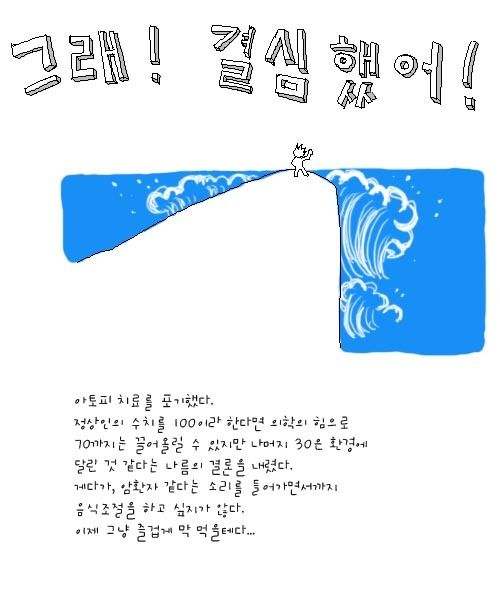 그래! 결심했어!
아토피 치료를 포기했다.
정상인의 수치를 100이라 한다면 의학의 힘으로
70까지는 끌어올릴 수 있지만 나머지 30은 환경에
달린 것 같다는 나름의 결론을 내렸다.
게다가, 암환자 같다는 소리를 들어가면서까지
음식조절을 하고 싶지가 않다.
이제 그냥 즐겁게 막 먹을테다...